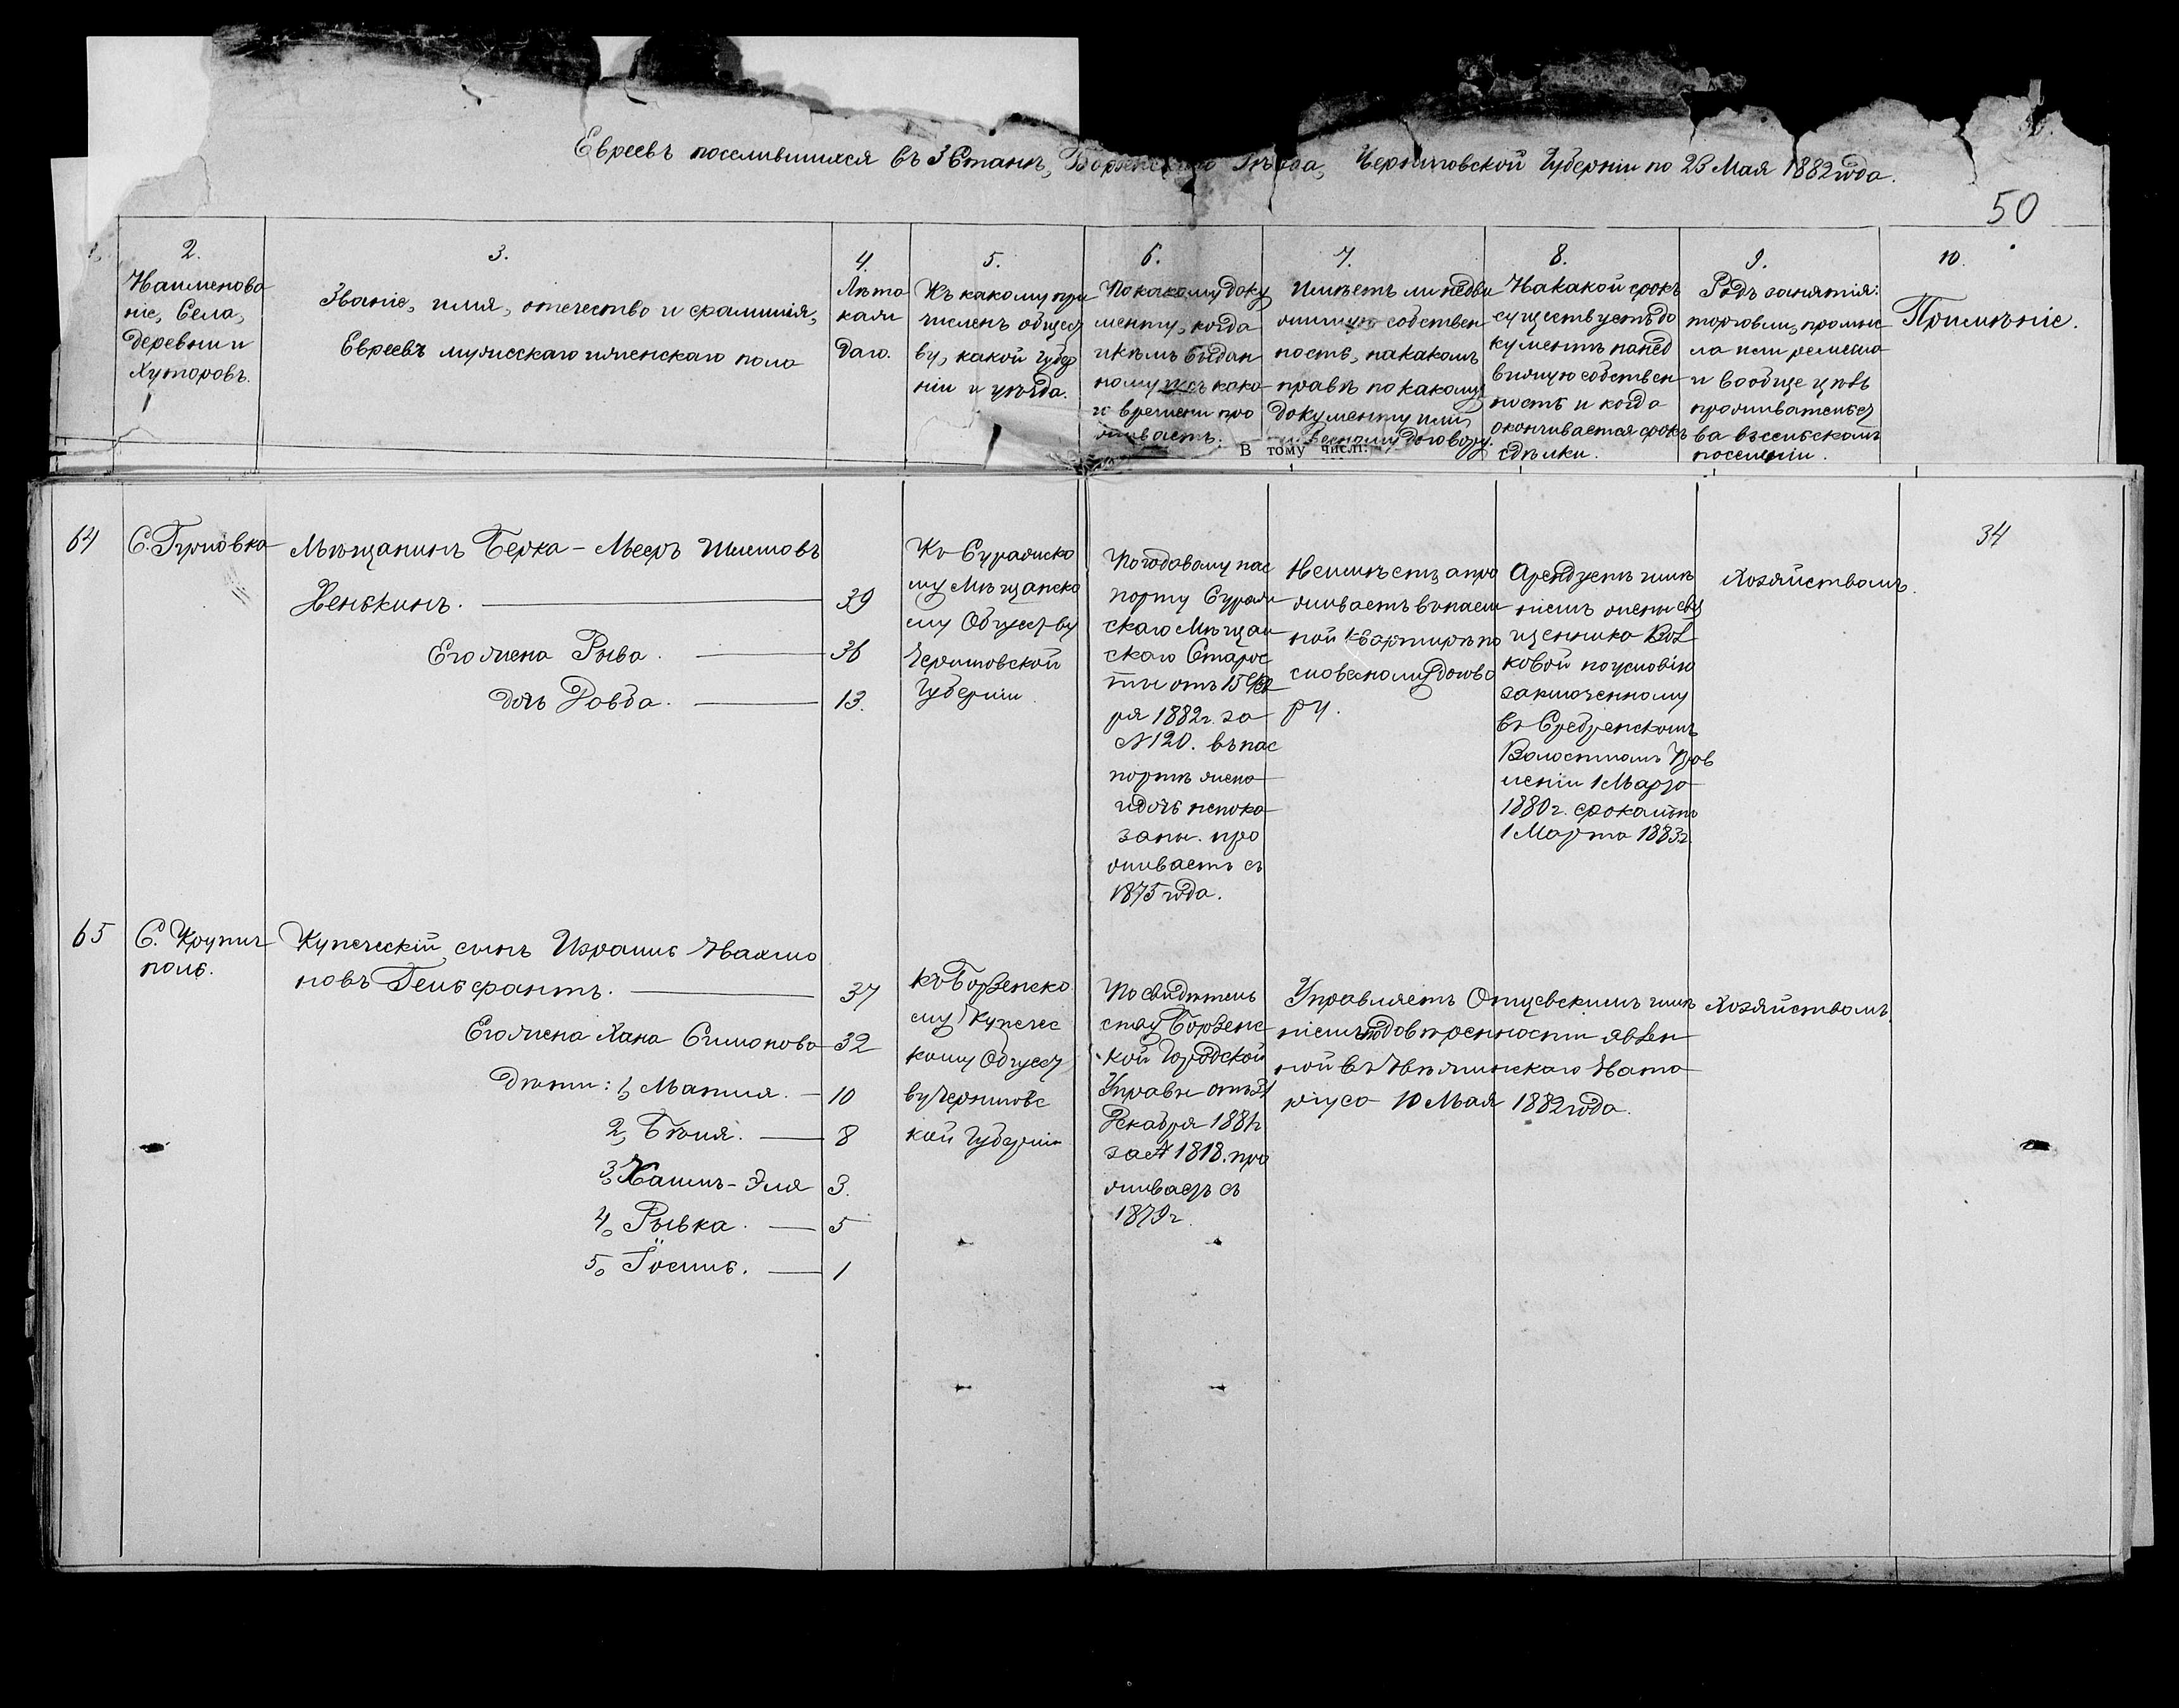 Евреевъ поселившихся въ 3 Станѣ, Борзенскаго Уѣзда, Черниговской Губерніи по 23 Мая 1882 года.
50
2.
Наименова
ніе, Села,
деревни и
Хуторовъ.
3.
Званіе, имя, отечество и фамилія,
Евреевъ мужескаго и женскаго пола
4.
Лѣта
каж
даго.
5.
Къ какому при
численъ общест
ву, какой губер
ніи и уѣзда.
6.
По какому доку
менту, когда
и кѣмъ выдан
ному и съ како
го времени про
живаетъ.
7.
Имѣетъ ли недви
жимую собствен
ность, на какомъ
правѣ по какому
документу или
словесному договору.
8.
На какой срокъ
существуетъ до
кументъ на нед
вижимую собствен
ность и когда
окончивается срокъ
сдѣлки.
9.
Родъ занятія:
торговли, промыс
ла или ремесла
и вообще цѣль
прожительст
ва въ сельскомъ
поселеніи.
10.
Примѣніе.
В тому числі:
34
64
С. Гриовка
Мѣщанинъ Берка-Мееръ Шлемовъ
Хенькинъ. 39
Его жена Рыва. 36
дочь Равва. 13.
Къ Суражско
му Мѣщанско
му Обществу
Черниговской
Губерніи.
По годовому пас
порту Сураж
скаго Мѣщан
скаго Старос
ты отъ 15 Янва
ря 1882 г. за
№ 120. въ пас
портѣ жена
и дочь непока
заны. про
живаетъ съ
1875 года.
Неимѣетъ, а про
живаетъ въ наем
ной квартирѣ по
словесному догово
ру.
Арендуетъ имѣ
ніемъ жены свя
щенника Вол
ковой по условію
заключенному
въ Сребренскомъ
Волостномъ Прав
леніи 1 Марта
1880 г. срокомъ по
1 Марта 1883 г.
Хозяйствомъ.
65
С. Крупич
поль.
Купеческій сынъ Израиль Нахмо
новъ Гельфантъ. 37
Его жена Хана Симонова 32
дѣти: 1, Маниля. 10
2, Бѣня. 8
3, Хаимъ-Эля 3.
4, Рывка. 5
5, Іосиль. 1
Къ Борзенско
му Купечес
кому Общест
ву Черниговс
кой Губерніи
По свидѣтель
ству Борзенс
кой Городской
Управы отъ 31
Декабря 1881 г
за № 1818. про
живаетъ съ
1879 г.
Управляетъ Отцевскимъ имѣ
ніемъ по довѣренности явлен
ной въ Нѣжинскаго Нота
ріуса 10 Мая 1882 года.
Хозяйствомъ.